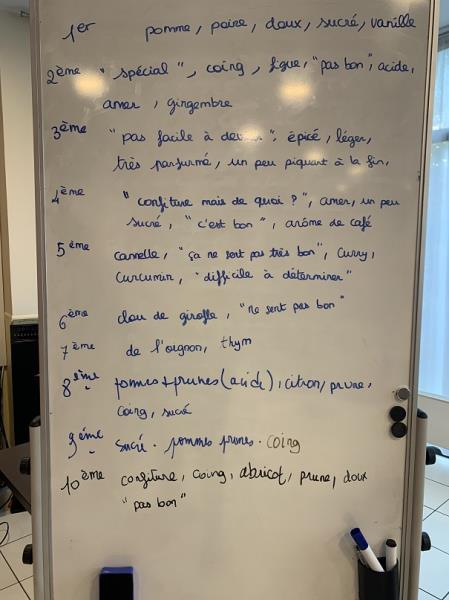 1er pomme, poire, doux, sucré, vanille
2ème "spécial", coing, figue, "pas bon", acide,
amer, gingembre
3ème "pas facile à deviner", épicé, léger,
très parfumé, un peu piquant à la fin,
4ème "confiture mais de quoi ?", amer, un peu
sucré, "c'est bon", arôme de café
5ème cannelle, "ça ne sent pas très bon", curry,
curcumin, "difficile à déterminer"
6ème clou de girofle, "ne sent pas bon"
7ème de l'oignon, thym
8ième pommes+prunes (acide), citron, prune,
coing, sucré
9ième sucré. pommes prunes. coing
10ème confiture, coing, abricot, prune, doux
"pas bon"